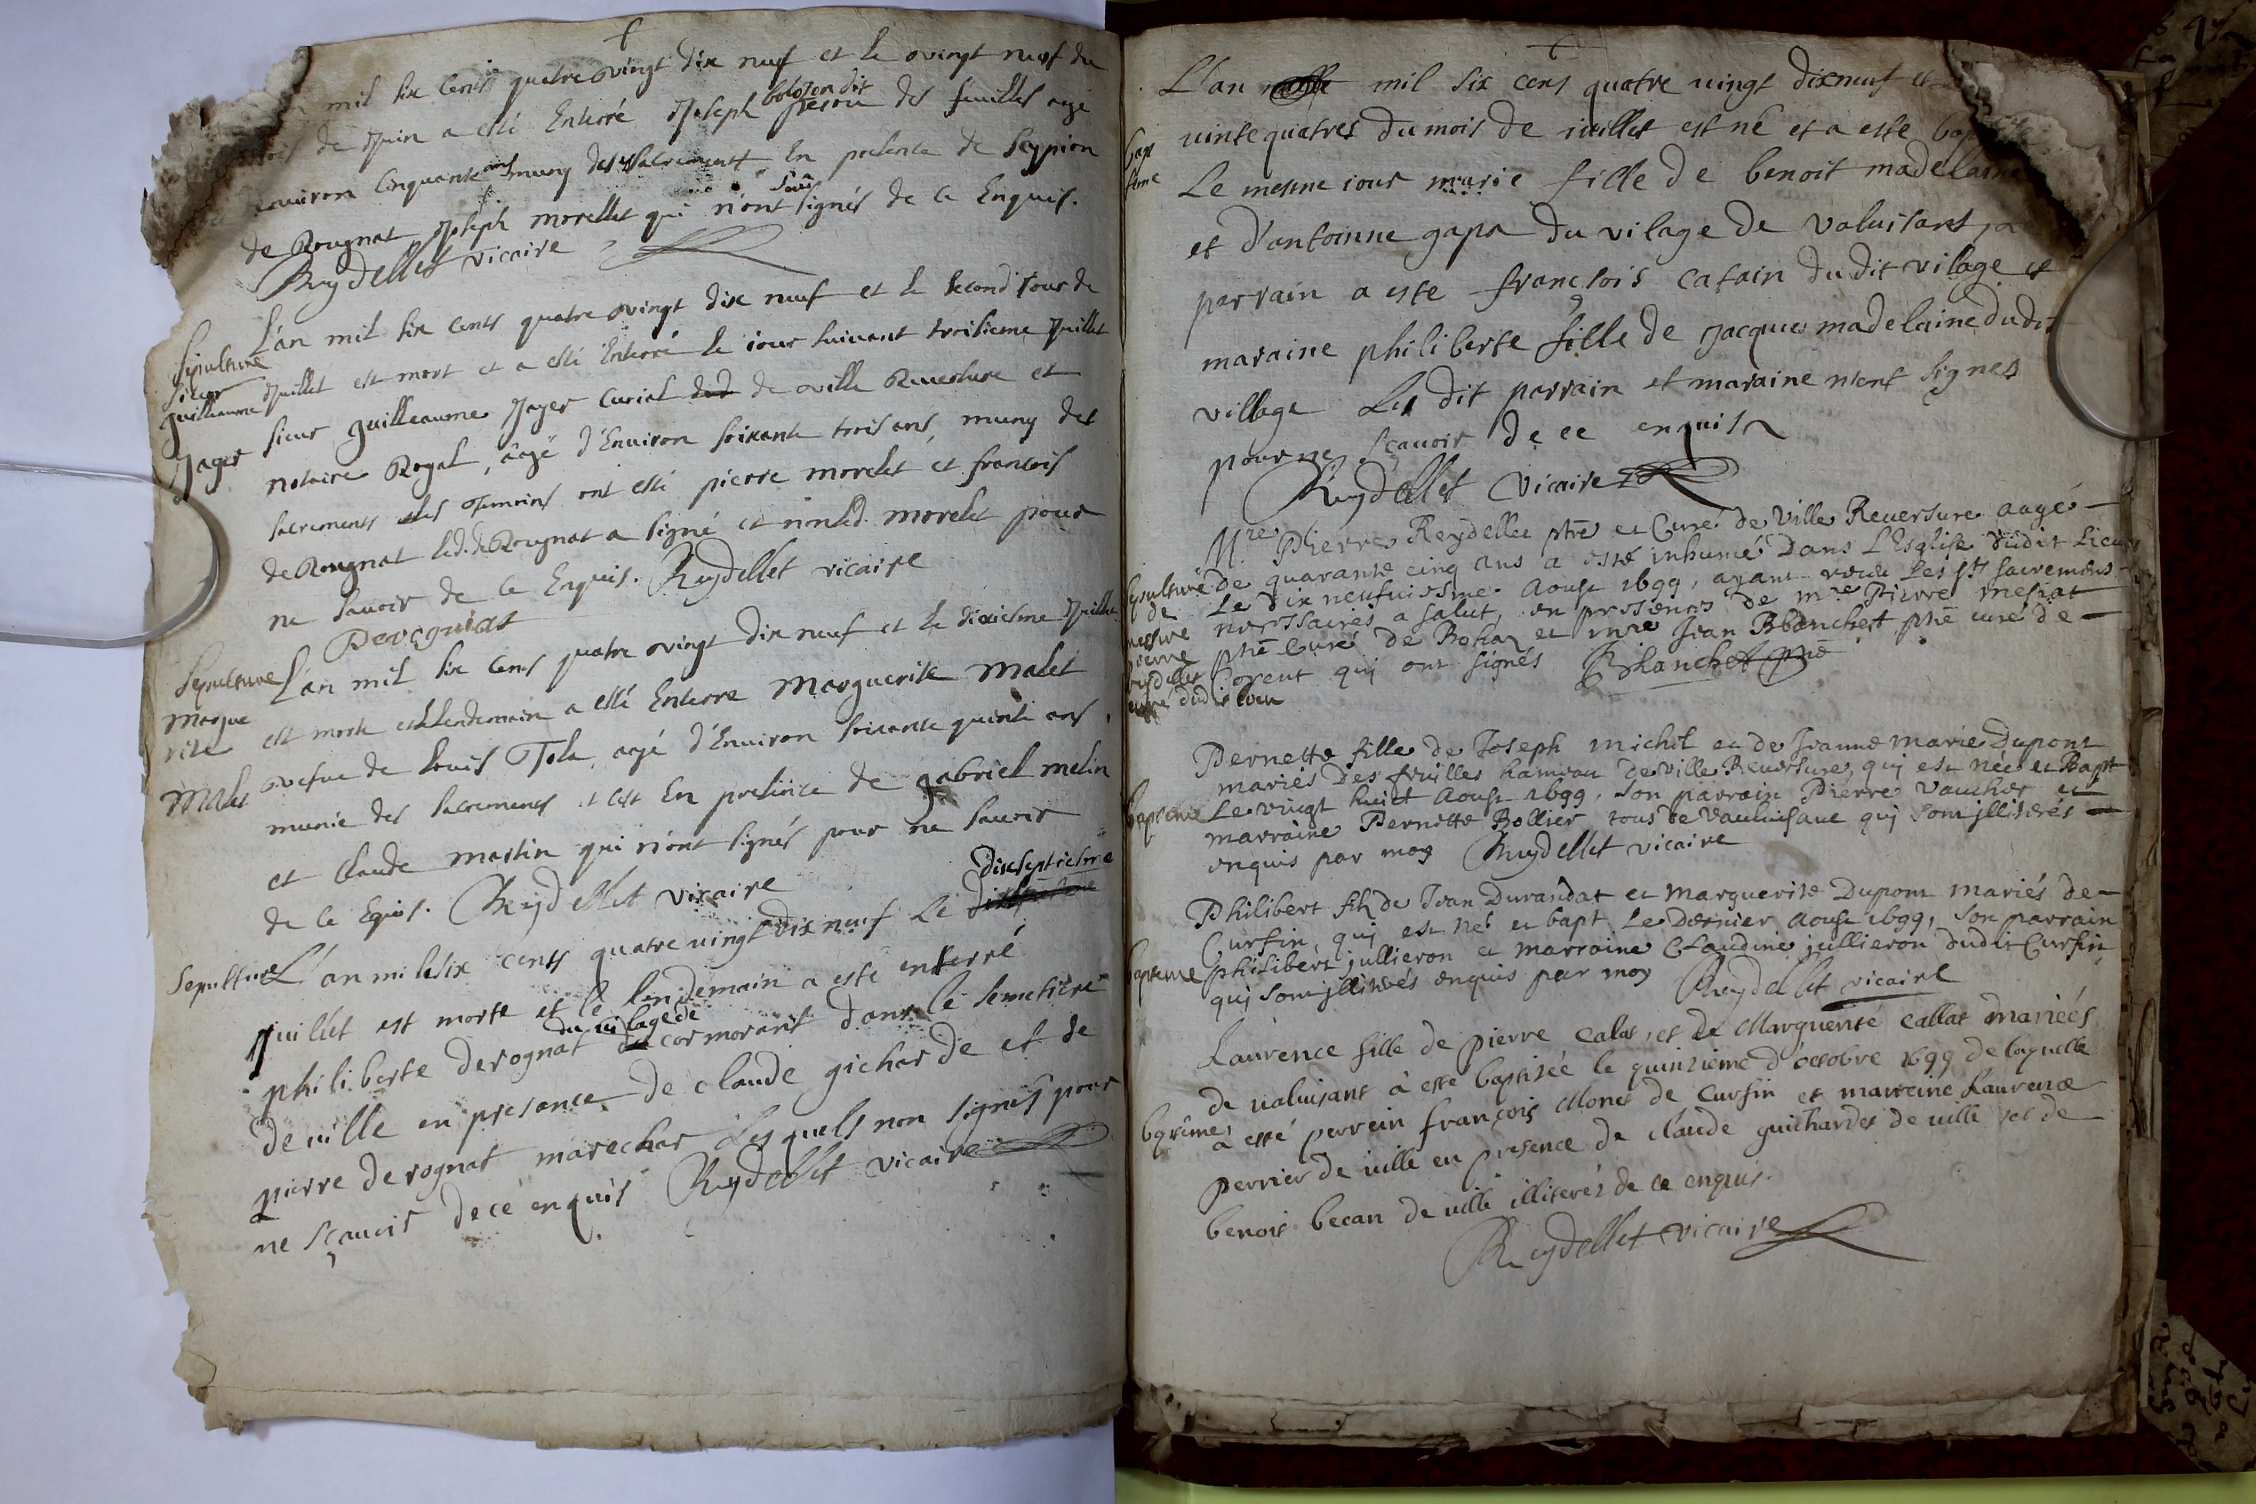 mil six cents quatre vingt dix neuf et le vingt neuf du
mois de Juin a esté Enterré Joseph bolozon dit peron des feuilles agé
environ cinquante ans muny des sacrements En presence de Scypion
de Rougnat Joseph morellet qui n'ont signés de ce Enquis.
Reydellet vicaire
L'an mil six cents quatre vingt dix neuf et le second jour de
Juillet est mort et a esté Enterré le iour suivant troisieme Juillet
sieur guilleaume Jayer curial de ville Reversure et
notaire Royal, aagé d'Environ soixante trois ans, muny des
sacrements les temoins ont esté pierre morelet et francois
de Rougnat led. de Rougnat a signé et non led. morelet pour
ne savoir de ce Enquis. Reydellet vicaire
Derognat
Sepulture
sieur
guilleaume
Jayer
L'an mil six cents quatre vingt dix neuf et le dixiesme Juillet
est morte et le lendemain a esté Enterre Marguerite Malet
vefue de Louis Tola, agé d'Environ soixante quinze ans,
munie des sacrements et est En presence de gabriel melin
et Claude martin qui n'ont signés pour ne savoir
de ce Equis. Reydellet vicaire
Sepulture
Margue
rite
Malet
L'an mil six cents quatre vingt dix neuf le dixseptiesme
juillet est morte et le lendemain a esté enterré
philiberte derognat du vilage de cormorant dans le semetiere
de ville en presance de claude gicharde et de
pierre derognat marechar Lesquels non signés pour
ne sçavoir de cé enquis Reydellet vicaire
Sepulture
L'an mil six cens quatre vingt dixneuf et
vinte quatres du mois de iuillet est né et a este baptisée
Le mesme iour marie fille de benoit madelaine
et d'antoinne gapa du vilage de valuisant,
parrain a este françois catain dudit vilage et
maraine philiberte fille de Jacques madelaine dudit
village Les dit parrain et maraine n'ont signes
pour ne sçavoir de ce enquis
Reydellet vicaire
bap
tême
Mre Pierre Reydellet ptre et Curé de Ville Reuersure aagé
de quarante cinq ans a esté inhumé dans L'Esglise dudit Lieu
Le dix neufuiesme Aoust 1699, ayant receu Les sts sacremens
necessaires a salut, en presences de mre Pierre mesiat
ptre Curé de Bohaz et mre Jean Blanchet ptre curé de
Corent qui ont signés Blanchet ptre
Sepulture
de
messire
pierre
reydellet
curé dudit lieu
Pernette fille de Joseph michel et de Jeanne marie Dupont
mariés des feuilles hameau de Ville Reuersure, qui est née et Bapt
Le vingt huict Aoust 1699, son parrain Pierre Vaucher et
marraine Pernette Bollier tous de Vauluisant qui sont jllitérés
enquis par moy Reydellet vicaire
baptême
Philibert fils de Jean Durandat et Marguerite Dupont mariés de
Curfin, qui est né et bapt. Le dernier Aoust 1699, son parrain
philibert jullieron et marraine Claudine jullieron dudit Curfin
qui sont jllitérés enquis par moy Reydellet vicaire
baptême
Laurence fille de pierre calat, et de Marguerite callat mariées
de valuisant à esté baptisée le quinzieme d'octobre 1699 de laquelle
a esté perrein françois Monet de Curfin et marreine Laurence
perrier de uille en presence de claude guichardet de uille et de
benoit becan de uille illiterés de ce enquis.
Reydellet vicaire
bâteme